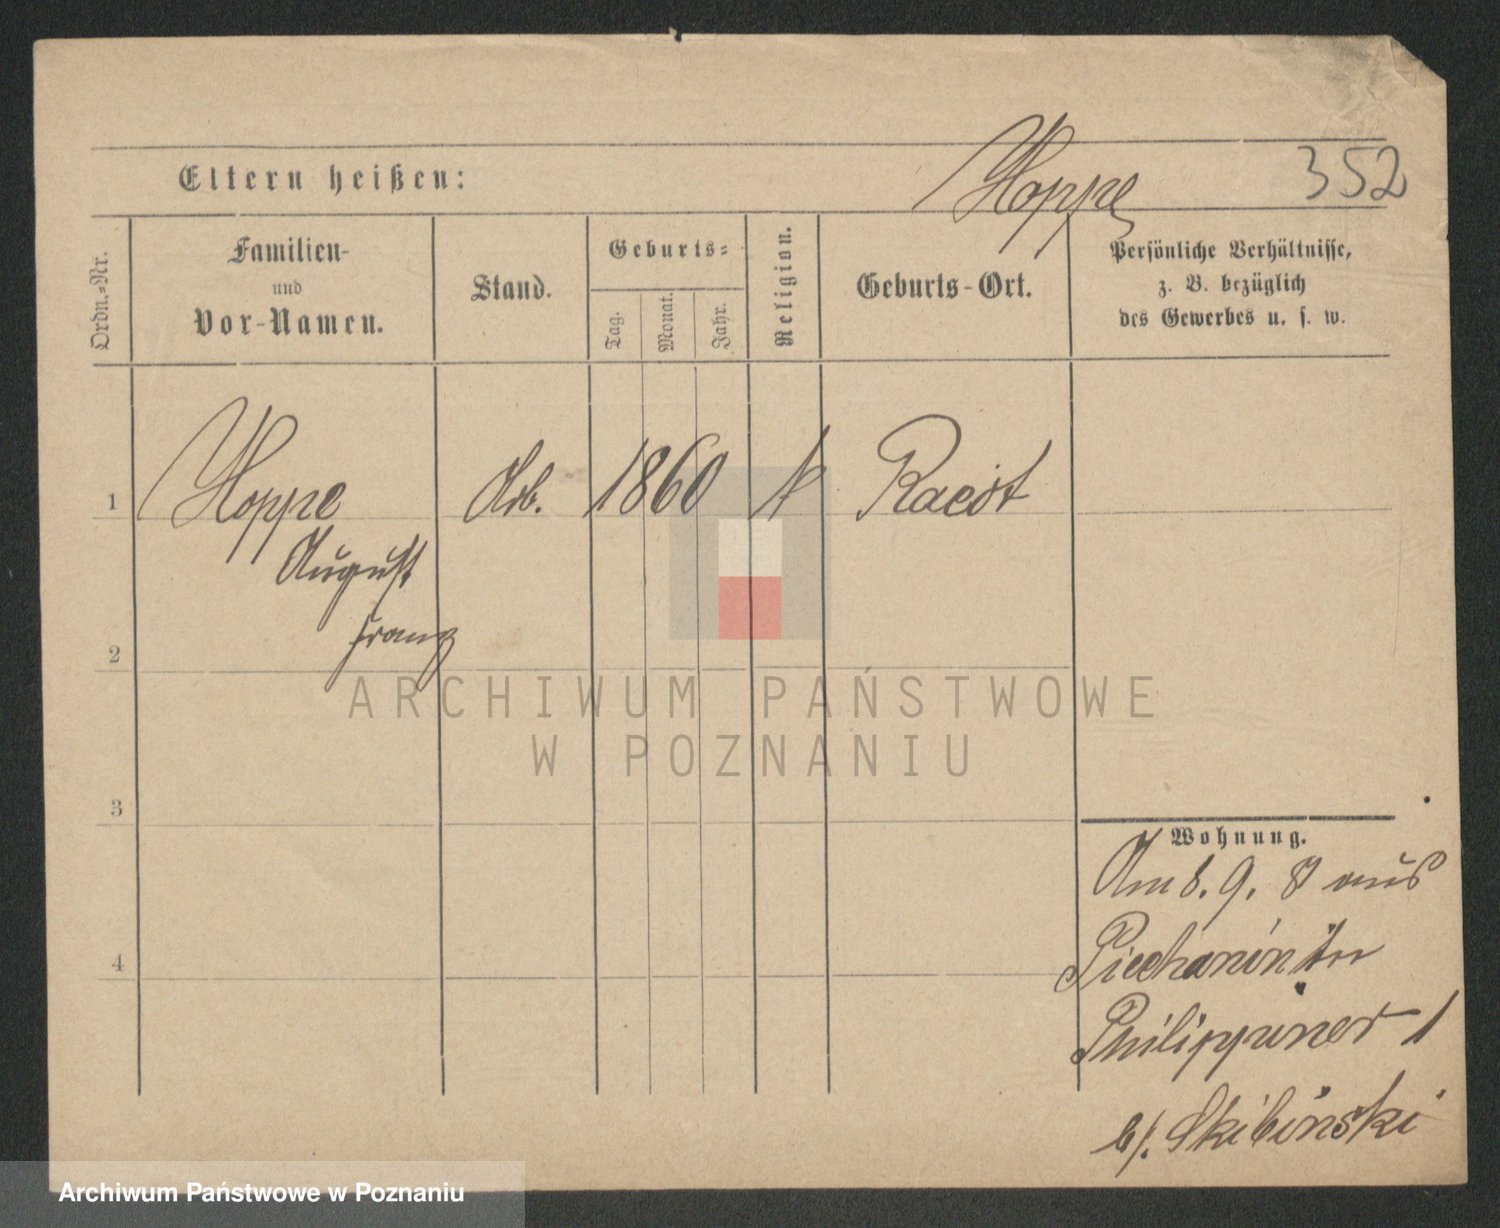 Eltern heißen:
Hoppe
352
Ordn.-Nr.
Familien-
und
Vor-Namen.
Stand.
Geburts-
Tag.
Monat.
Jahr.
Religion.
Geburts-Ort.
Persönliche Verhältnisse,
z. B. bezüglich
des Gewerbes u. s. w.
1
Hoppe
Arb.
1860
k
Racot
August
Franz
2
ARCHIWUM PAŃSTWOWE
W POZNANIU
3
Wohnung.
Am 8. 9. 8 aus
4
Piechanin in
Philippiner 1
b/. Skibinski
Archiwum Państwowe w Poznaniu